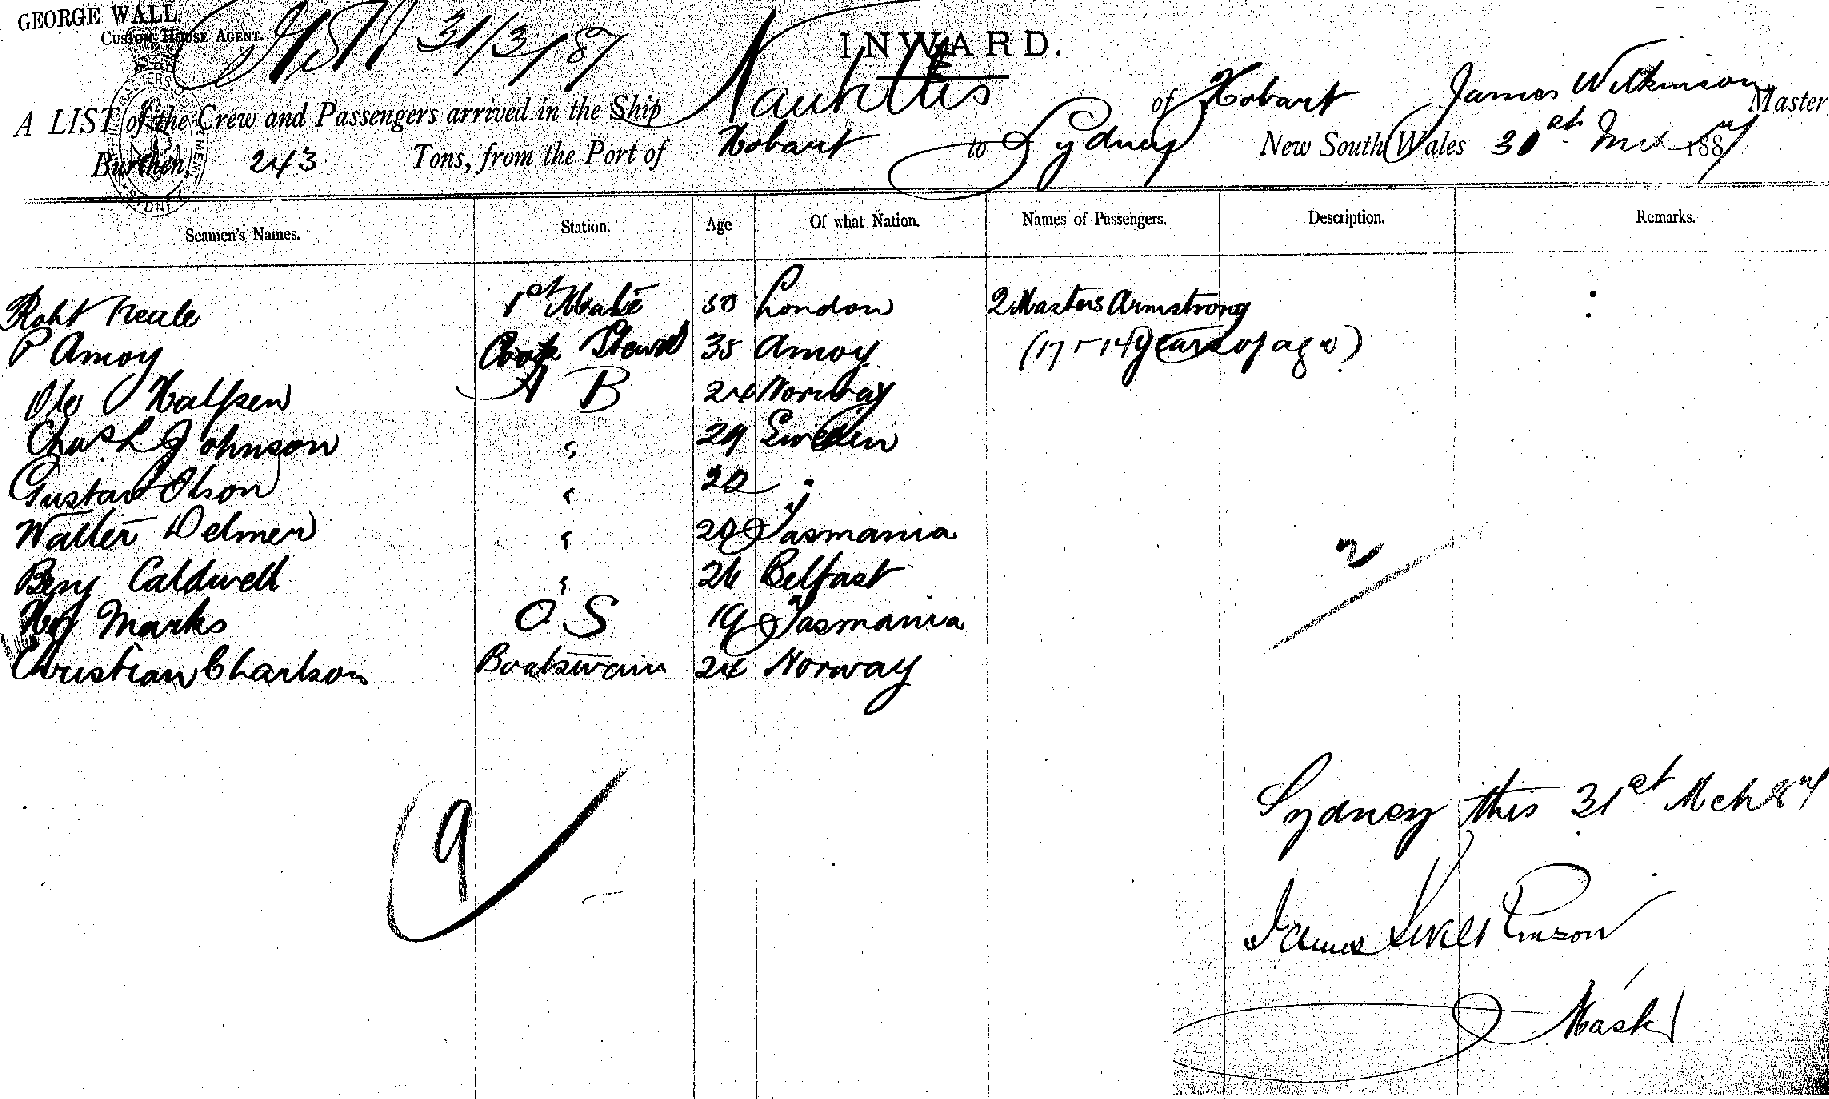 GEORGE WALL
CUSTOM HOUSE AGENT.
31/3/87
INWARD.
A LIST of the Crew and Passengers arrived in the Ship Nautilus of Hobart James Wilkinson Master
Burthen, 243 Tons, from the Port of Hobart to Sydney New South Wales 30th 1887
Seamen's Names. Station. Age Of what Nation. Names of Passengers. Description. Remarks.
Robt Neale 1st Mate 50 London 2 Masters Armstrong
P Amoy Cook Steward 35 Amoy (17 - 14 years of age)
Ole Halfsen A B 24 Norway
Chas L Johnson " 29 Sweden
Gustav Olson " 20 "
Walter Delmer " 20 Tasmania
Benj Caldwell " 26 Belfast
Marks O S 19 Tasmania
Christian Charlson Boatswain 24 Norway
2
9
Sydney this 31st Mch 87
James Wilkinson
Master